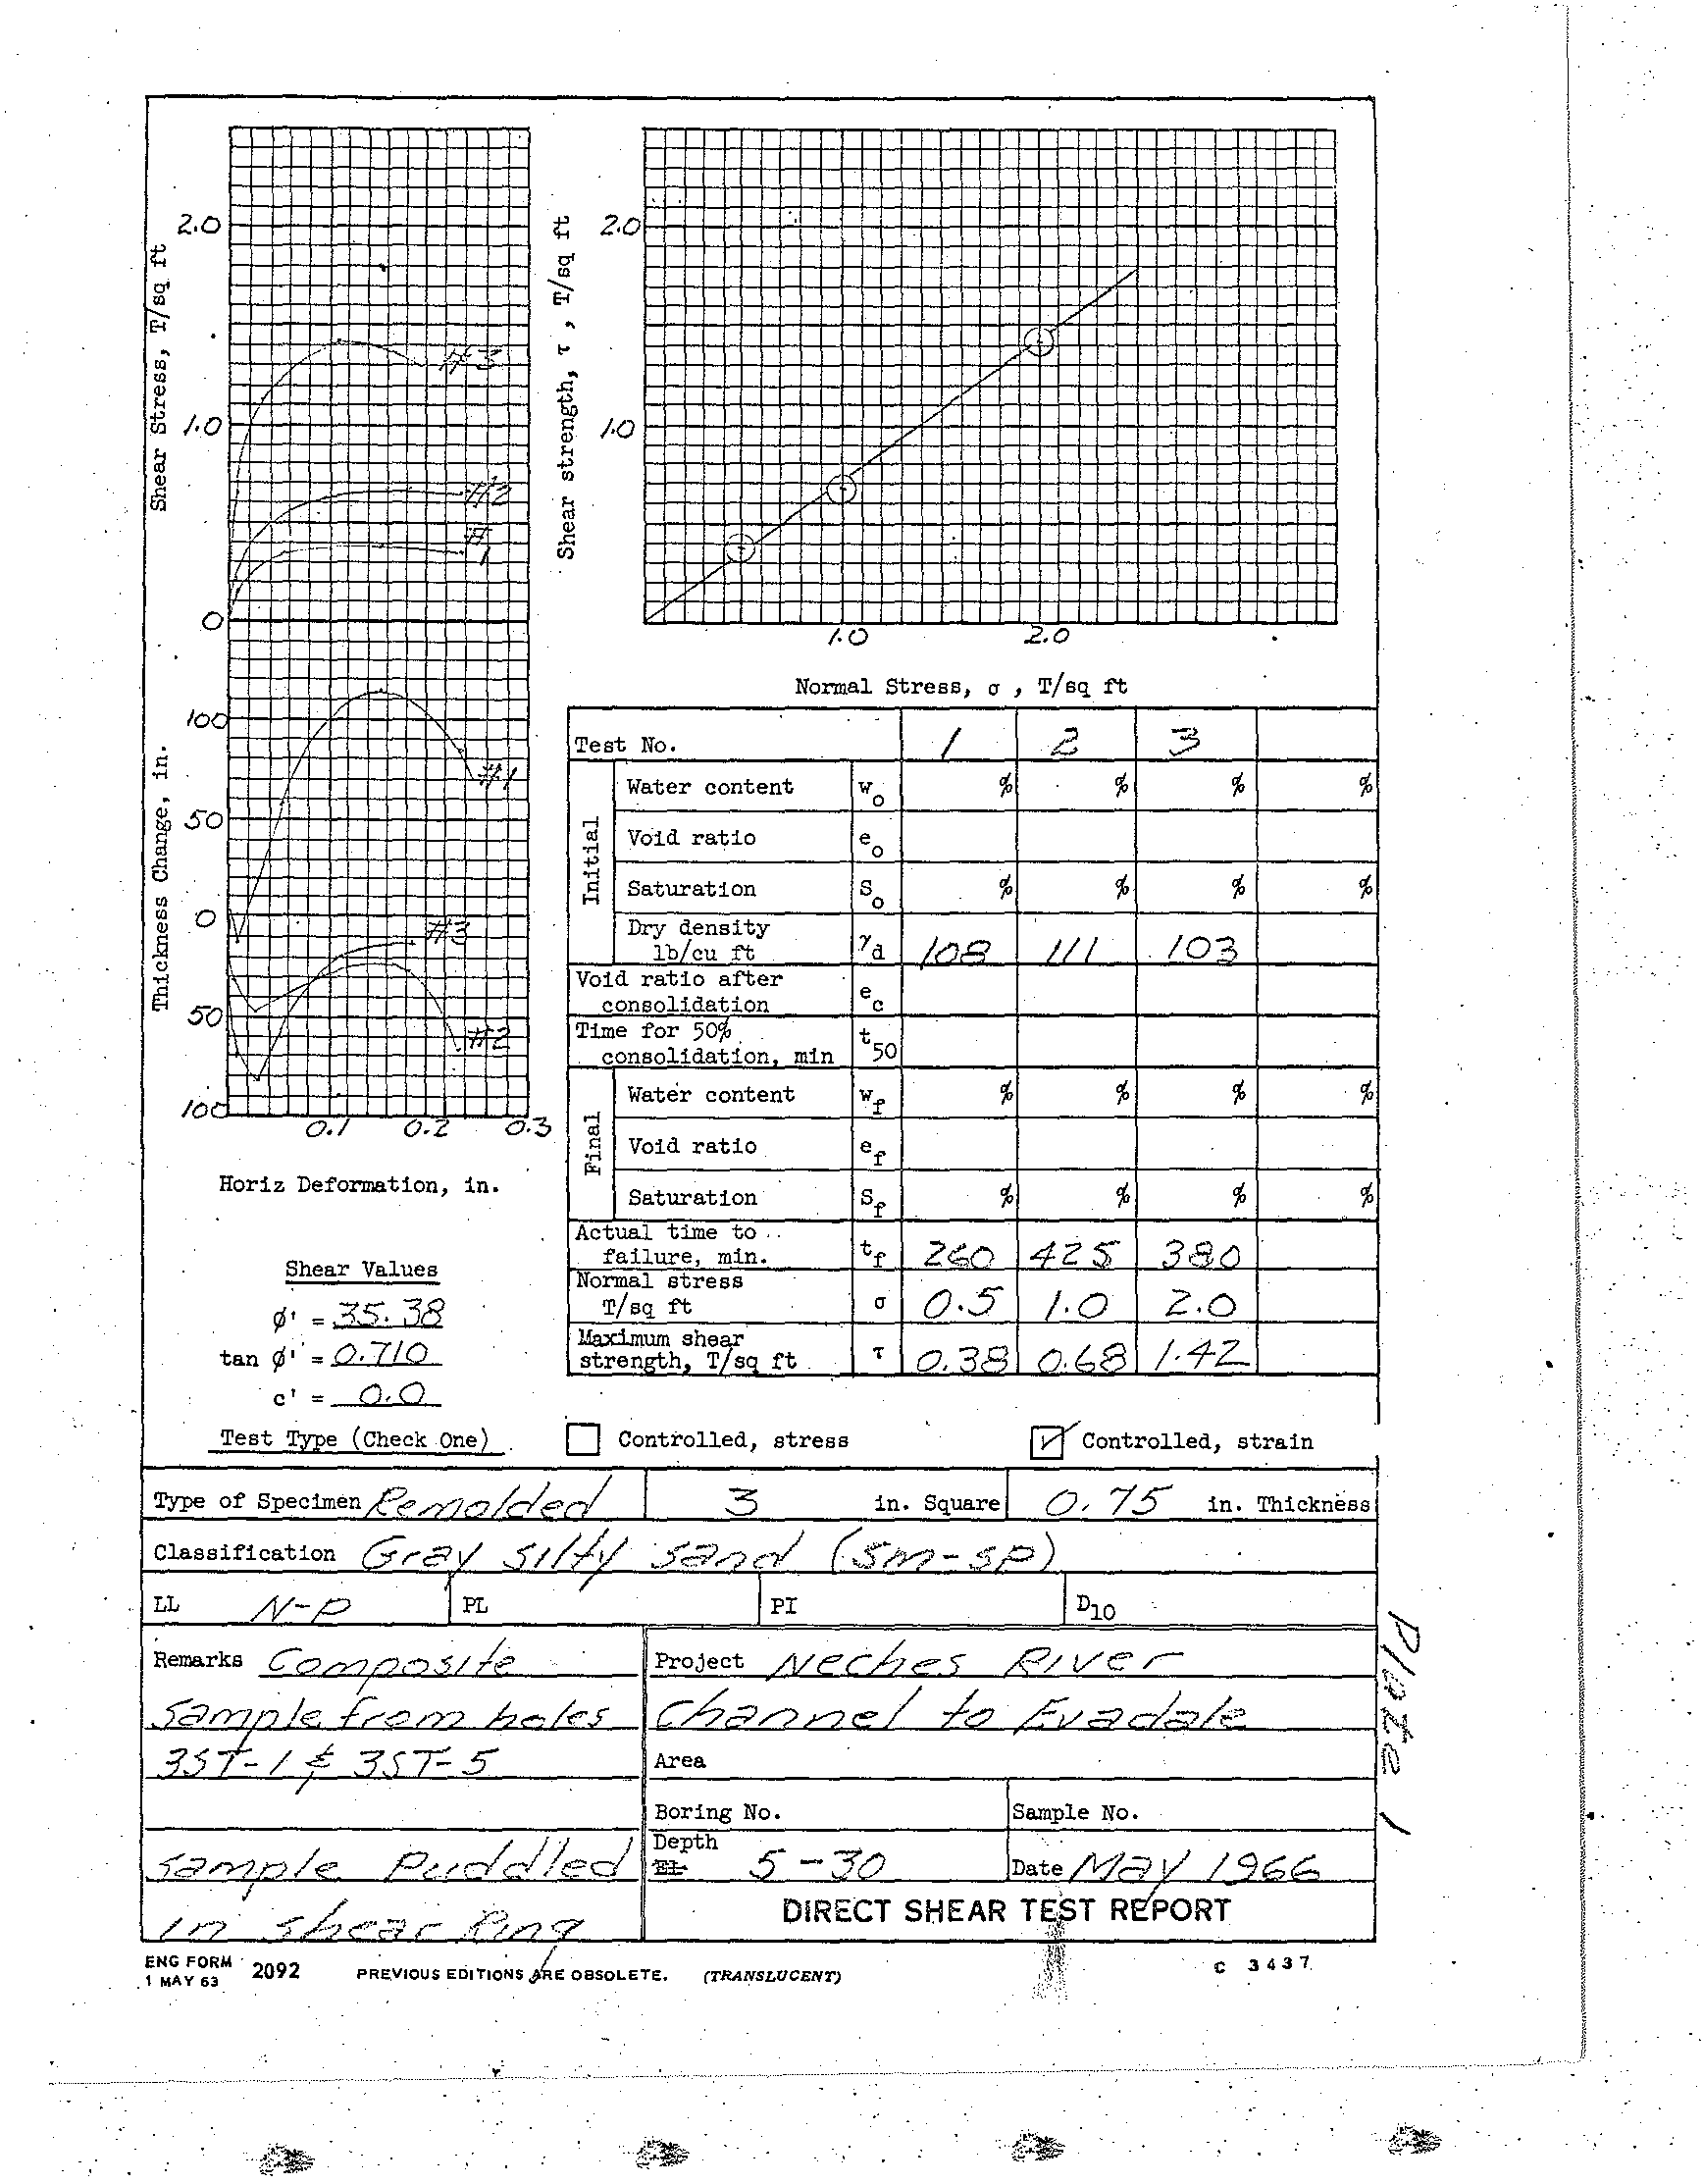 Shear Stress, T/sq ft
2.0
1.0
0
#3
#2
#1
Thickness Change, in.
100
50
0
50
100
#1
#3
#2
0.1 0.2 0.3
Horiz Deformation, in.
Shear strength, τ , T/sq ft
2.0
1.0
1.0 2.0
Normal Stress, σ , T/sq ft
Test No. 1 2 3
Initial
Water content wo % % % %
Void ratio eo
Saturation So % % % %
Dry density
lb/cu ft γd 108 111 103
Void ratio after
consolidation ec
Time for 50%
consolidation, min t50
Final
Water content wf % % % %
Void ratio ef
Saturation Sf % % % %
Actual time to
failure, min. tf 260 425 380
Normal stress
T/sq ft σ 0.5 1.0 2.0
Maximum shear
strength, T/sq ft τ 0.38 0.68 1.42
Shear Values
ϕ' = 35.38
tan ϕ' = 0.710
c' = 0.0
Test Type (Check One) Controlled, stress Controlled, strain
Type of Specimen Remolded 3 in. Square 0.75 in. Thickness
Classification Gray silty sand (SM-SP)
LL N-P PL PI D10
Remarks Composite
sample from holes
3ST-1 & 3ST-5
sample puddled
in shear ring
Project Neches River
Channel to Evadale
Area
Boring No. Sample No.
Depth
El 5-30 Date May 1966
DIRECT SHEAR TEST REPORT
Plate 1
ENG FORM
1 MAY 63 2092 PREVIOUS EDITIONS ARE OBSOLETE. (TRANSLUCENT) C 3437